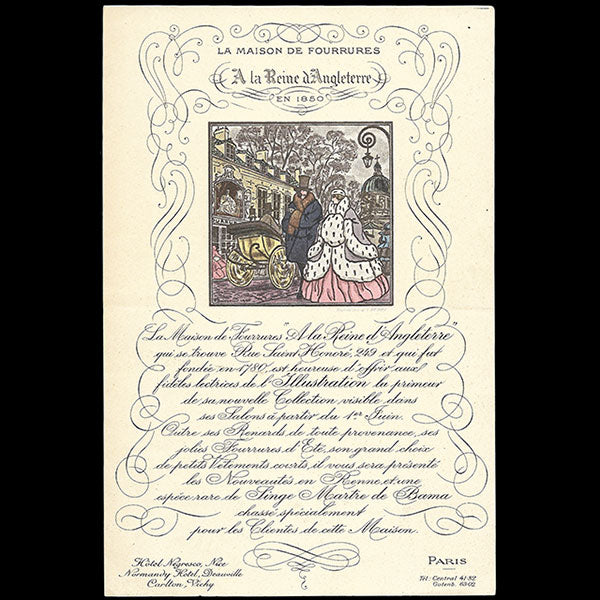 LA MAISON DE FOURRURES
A la Reine d'Angleterre
EN 1850
La Maison de Fourrures "A la Reine d'Angleterre"
qui se trouve Rue Saint Honoré, 249 et qui fut
fondée en 1780, est heureuse d'offrir aux
fidèles lectrices de l'Illustration la primeur
de sa nouvelle Collection, visible dans
ses Salons à partir du 1er Juin.
Outre ses Renards de toute provenance, ses
jolies Fourrures d'Eté, son grand choix
de petits Vêtements courts, il vous sera présenté
les Nouveautés en Renne, et une
espèce rare de Singe Martre de Bama
chassé spécialement
pour les Clientes de cette Maison.
Hôtel Négresco, Nice
Normandy Hôtel, Deauville
Carlton, Vichy
PARIS
Tél: Central 41-82
Gutenb. 63-02